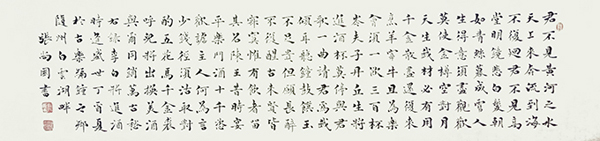 君不見黃河之水
天上來奔流到海
不復迴君不見高
堂明鏡悲白髮朝
如青絲暮成雪人
生得意須盡歡
莫使金樽空對月
天生我材必有用
千金散盡還復來
烹羊宰牛且為樂
會須一飲三百杯
岑夫子丹丘生將
進酒杯莫停與君
歌一曲請君為我
傾耳聽鐘鼓饌玉
不足貴但願長醉
不復醒古來聖賢皆
寂寞惟有飲者留
其名陳王昔時宴
平樂斗酒十千恣
歡謔主人何為言
少錢徑須沽取對君
酌五花馬千金裘
呼兒將出換美酒
與爾同銷萬古愁
右錄李白將進酒
時逢盛世丁酉夏
於古樂編鐘之鄉
隨州白雲湖畔
張尚國書